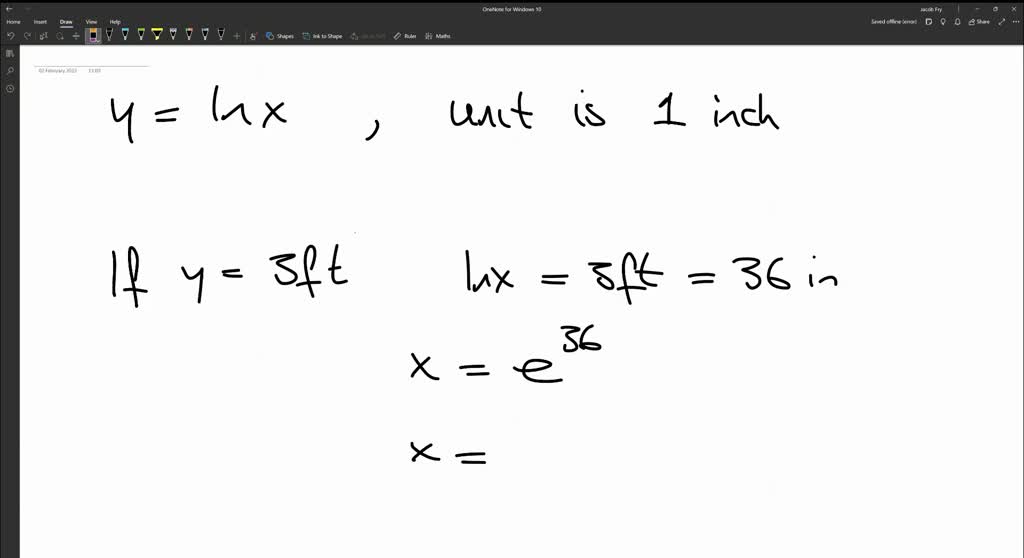 OneNote for Windows 10
Jacob Fry
Home Insert Draw View Help
Saved offline (error) Share
Shapes Ink to Shape Ruler Maths
02 February 2022 11:03
y = ln x , unit is 1 inch
If y = 3ft ln x = 3ft = 36 in
x = e^36
x =